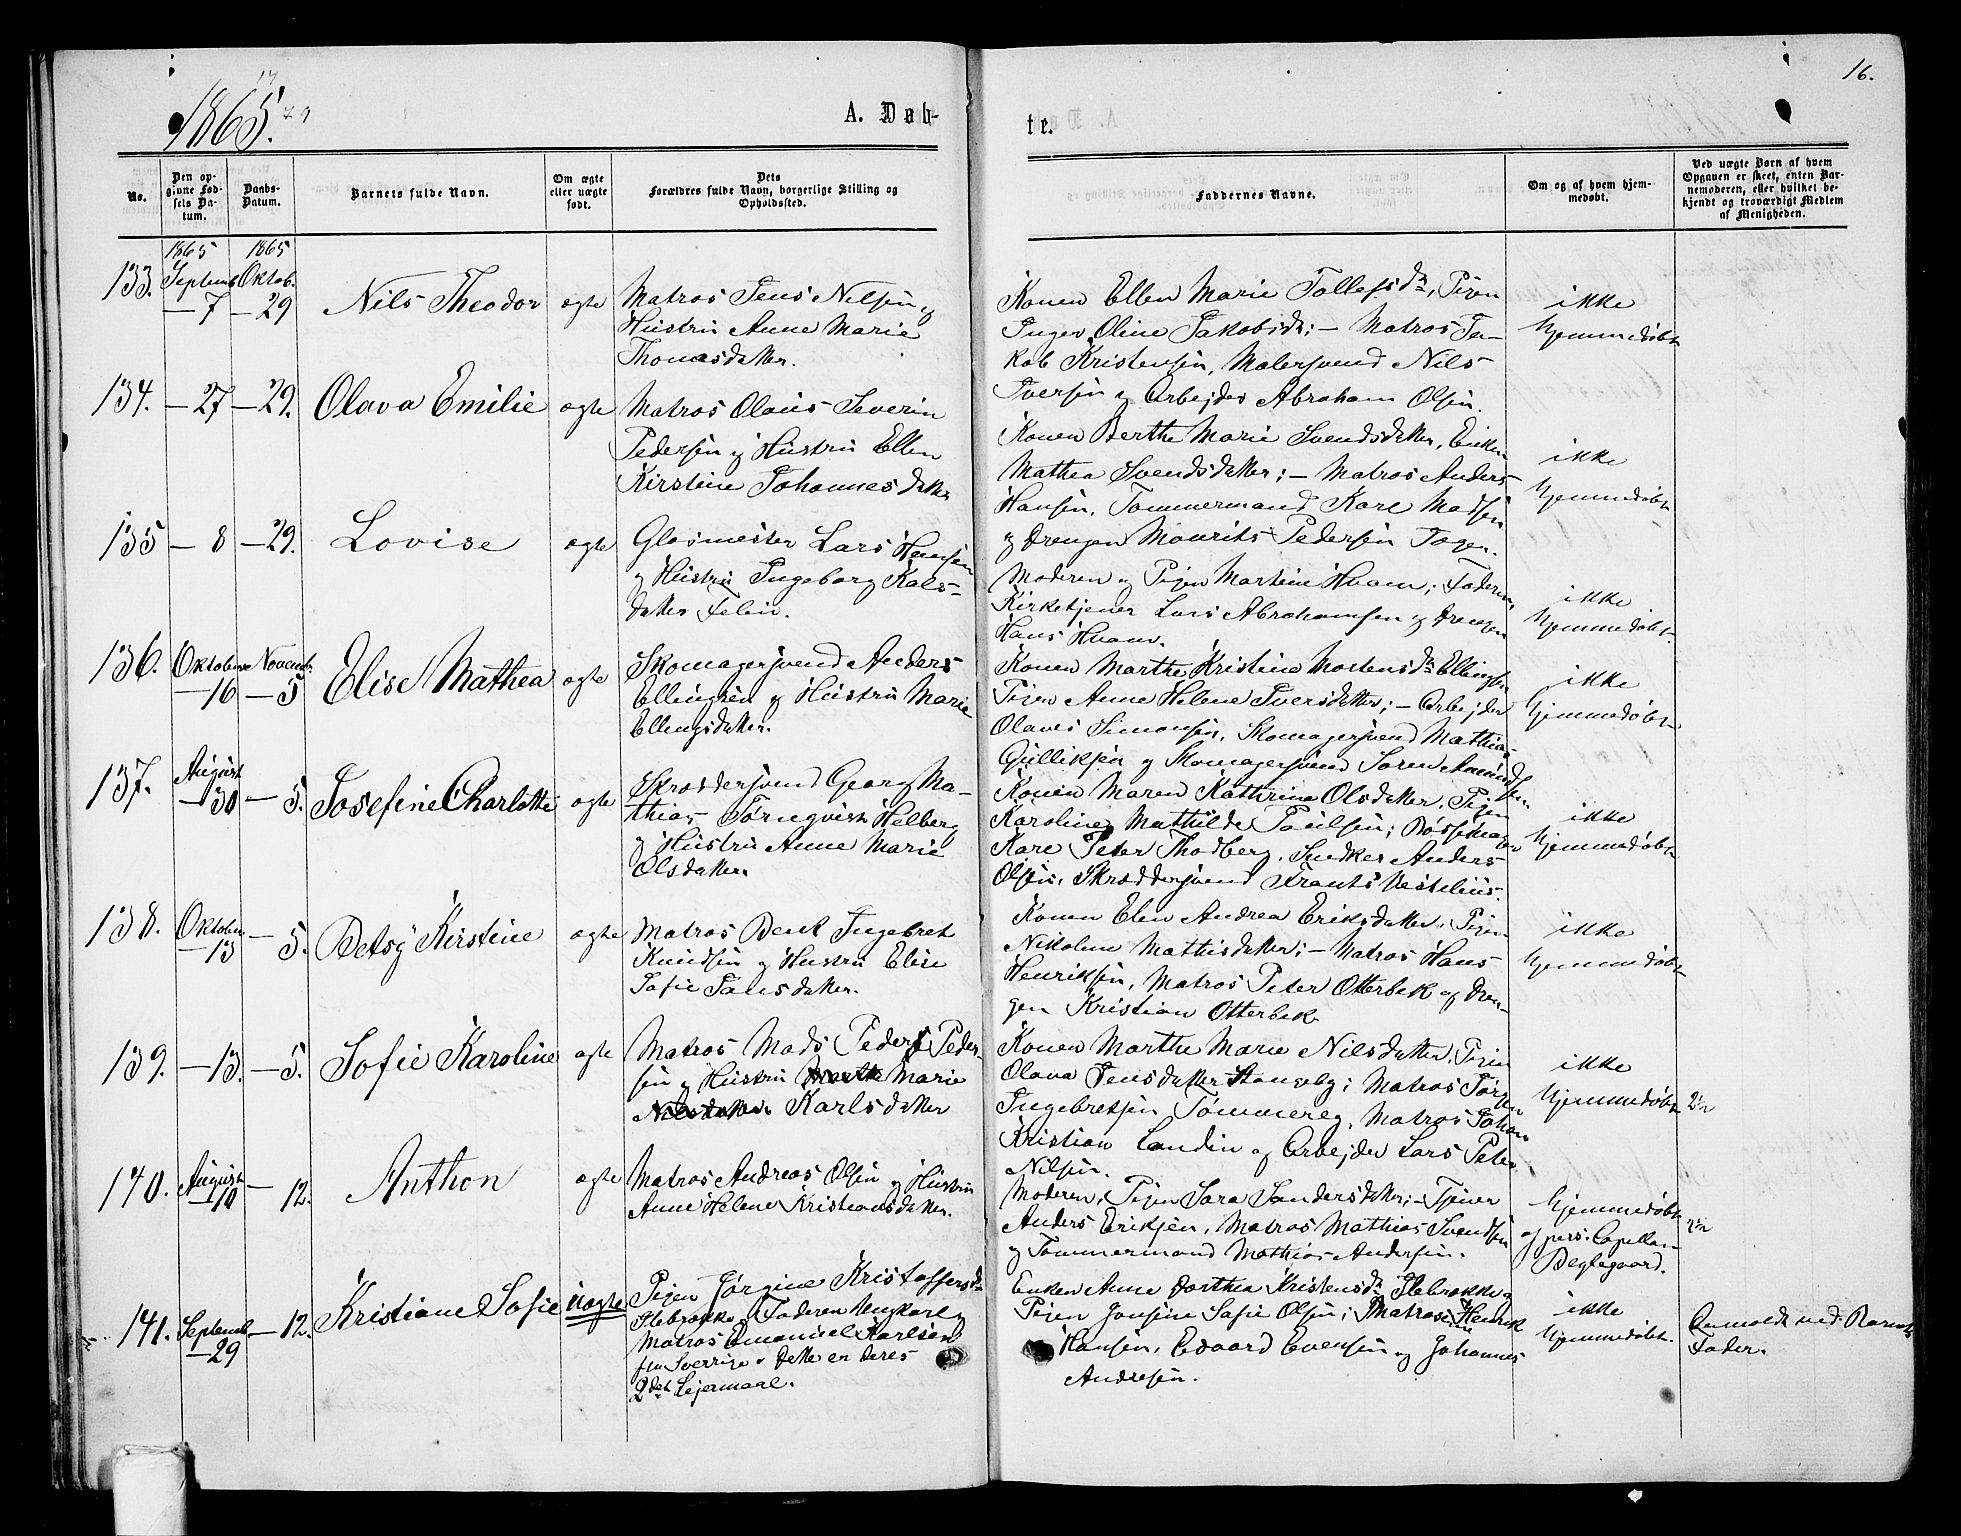 16.
1865.
A. Døb-
te.
No.
Den op-
givne Fød-
sels Da-
tum.
Daabs-
Datum.
Barnets fulde Navn.
Om ægte
eller uægte
født.
Dets
Forældres fulde Navn, borgerlige Stilling og
Opholdssted.
Faddernes Navne.
Om og af hvem hjem-
medøbt.
Ved uægte Børn af hvem
Opgaven er skeet, enten Bar-
nemoderen, eller hvilket be-
kjendt og troværdigt Medlem
af Menigheden.
1865
1865
133.
Septemb.
— 7
Oktob.
— 29
Nils Theodor
ægte
Matros Jens Nilsen og
Hustru Anne Marie
Thomasdatter.
Konen Ellen Marie Tollefsdr, Pigen
Inger Oline Jakobsdr; — Matros Ja-
kob Kristensen, Malersvend Nils
Iversen og Arbejder Abraham Olsen.
ikke
hjemmedøbt
134.
— 27
— 29.
Olava Emilie
ægte
Matros Olaus Severin
Pedersen og Hustru Ellen
Kirstine Johannesdatter
Konen Berthe Marie Svendsdatter, Enken
Mathea Svendsdatter; — Matros Anders
Hansen, Tømmermand Karl Madsen
og Drengen Maurits Pedersen
ikke
hjemmedøbt
135
— 8
— 29.
Lovise
ægte
Glasmester Lars Hansen
og Hustru Ingeborg Kals-
datter
Moderen og Pigen Martine Huam; Faderen,
Kirketjener Lars Abrahamsen og Drengen
Hans Huam.
ikke
hjemmedøbt.
136.
Oktober
— 16
Novemb.
— 5
Elise Mathea
ægte
Skomagersvend Anders
Ellingsen og Hustru Marie
Ellingsdatter.
Konen Marthe Kristine Mortensdr Ellingsen
Pigen Anne Helene Iversdatter; — Arbejder
Olaves Simonsen, Skomagersvend Mathias
Gulliksen og Skomagersvend Søren Amundsen
ikke
hjemmedøbt
137.
August
— 30
— 5.
Josefine Charlotte
ægte
Skræddersvend Georg Ma-
thias Törnqvist Helberg
og Hustru Anne Marie
Olsdatter.
Konen Maren Kathrine Olsdatter, Pigen
Karoline Mathilde Paulsen; Bøssemager
Karl Peter Thodberg, Snedker Anders
Olsen, Skræddersvend Frants Vestelius.
ikke
hjemmedøbt
138.
Oktober
— 13
— 5.
Betsy Kirstine
ægte
Matros Bent Ingebret
Knudsen og Hustru Elise
Sofie Paulsdatter.
Konen Elen Andrea Eriksdatter, Pigen
Nikoline Mathisdatter; — Matros Hans
Henriksen, Matros Peter Otterbek og Dren-
gen Kristian Otterbek
ikke
hjemmedøbt
139.
— 13.
— 5.
Sofie Karoline
ægte
Matros Mads Peder Peder-
sen og Hustru Marie
Karlsdatter
Konen Marthe Marie Nilsdatter, Pigen
Olava Jensdatter Stangeby; Matros Jørgen
Ingebretsen Tømmereg, Matros Johan
Kristian Landin og Arbejder Lars Peter
Nilsen.
ikke
hjemmedøbt
140.
August
— 10
— 12.
Anthon
ægte
Matros Andreas Olsen og Hustru
Anne Helene Kristiansdatter.
Moderen, Pigen Sara Sandersdatter; — Tjener
Anders Eriksen, Matros Mathias Svendsen
og Tømmermand Mathias Andersen.
hjemmedøbt
af pers. Capellan
Deglegaard.
141.
Septemb.
— 29
— 12.
Kristiane Sofie
uægte
Pigen Jørgine Kristoffersdr
Ilebrække. Faderen Ungkarl og
Matros Emanuel Karlsen
fra Sverrige. Dette er deres
2det Lejermaal.
Enken Anne Dorthea Kristensdr Ilebrække og
Pigen Jonsine Sofie Olsen; Matroserne Henrik
Hansen, Edvard Evensen og Johannes
Andresen.
ikke
hjemmedøbt.
Anmeldt ved Barnets
Fader.